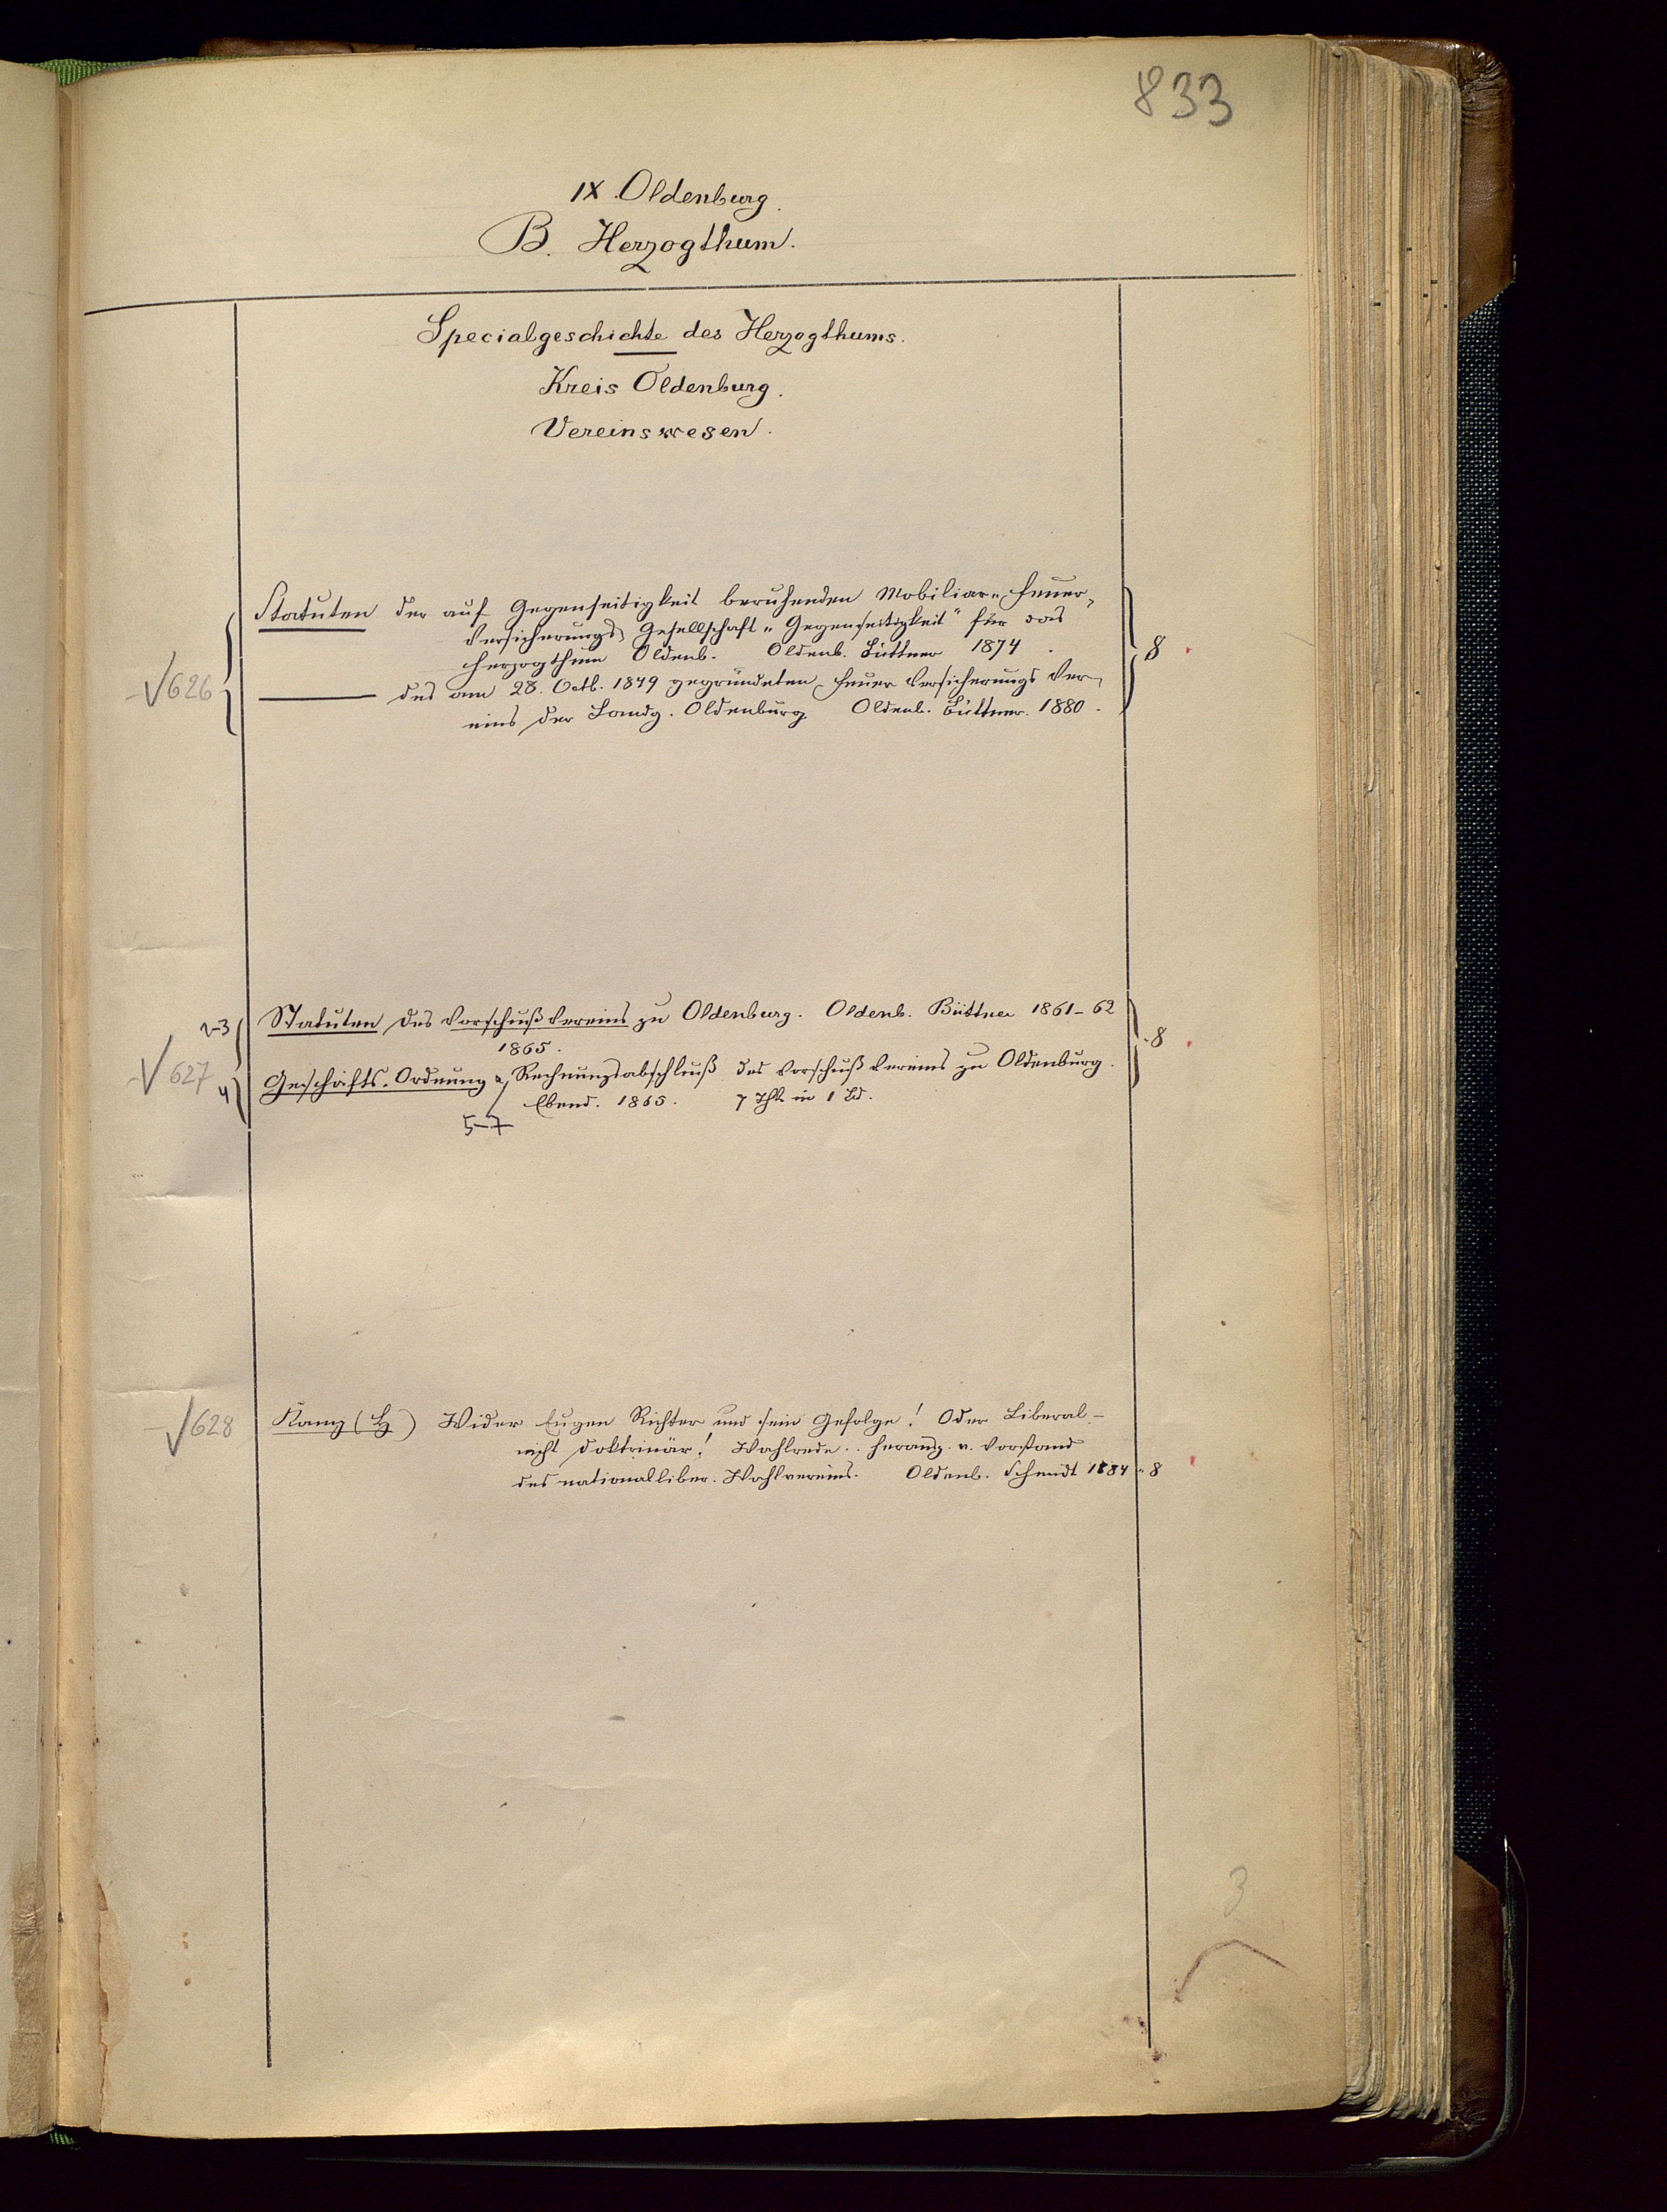 833
IX. Oldenburg.
B. Herzogthum.
Specialgeschichte des Herzogthums.
Kreis Oldenburg.
Vereinswesen.
Statuten der auf Gegenseitigkeit beruhenden Mobiliar-Feuer-
Versicherungs Gesellschaft "Gegenseitigkeit" für das
Herzogthum Oldenb. Oldenb. Büttner 1874. 8
√626 ——— des am 28. Octb. 1849 gegründeten Feuer Versicherungs Ver-
eins der Landg. Oldenburg. Oldenb. Büttner. 1880.
2-3 Statuten des Vorschuß Vereins zu Oldenburg. Oldenb. Büttner 1861-62
1865. 8
√627 4 Geschäfts-Ordnung & Rechnungsabschluß des Vorschuß Vereins zu Oldenburg.
Ebend. 1865. 7 Thle in 1 Bd.
5-7
√628 (H) Wider Eugen Richter und sein Gefolge! Oder Liberal-
nicht doktrinär! Wahlrede.. herausg. v. Vorstand
des nationalliber. Wahlvereins. Oldenb. 1884 8
3